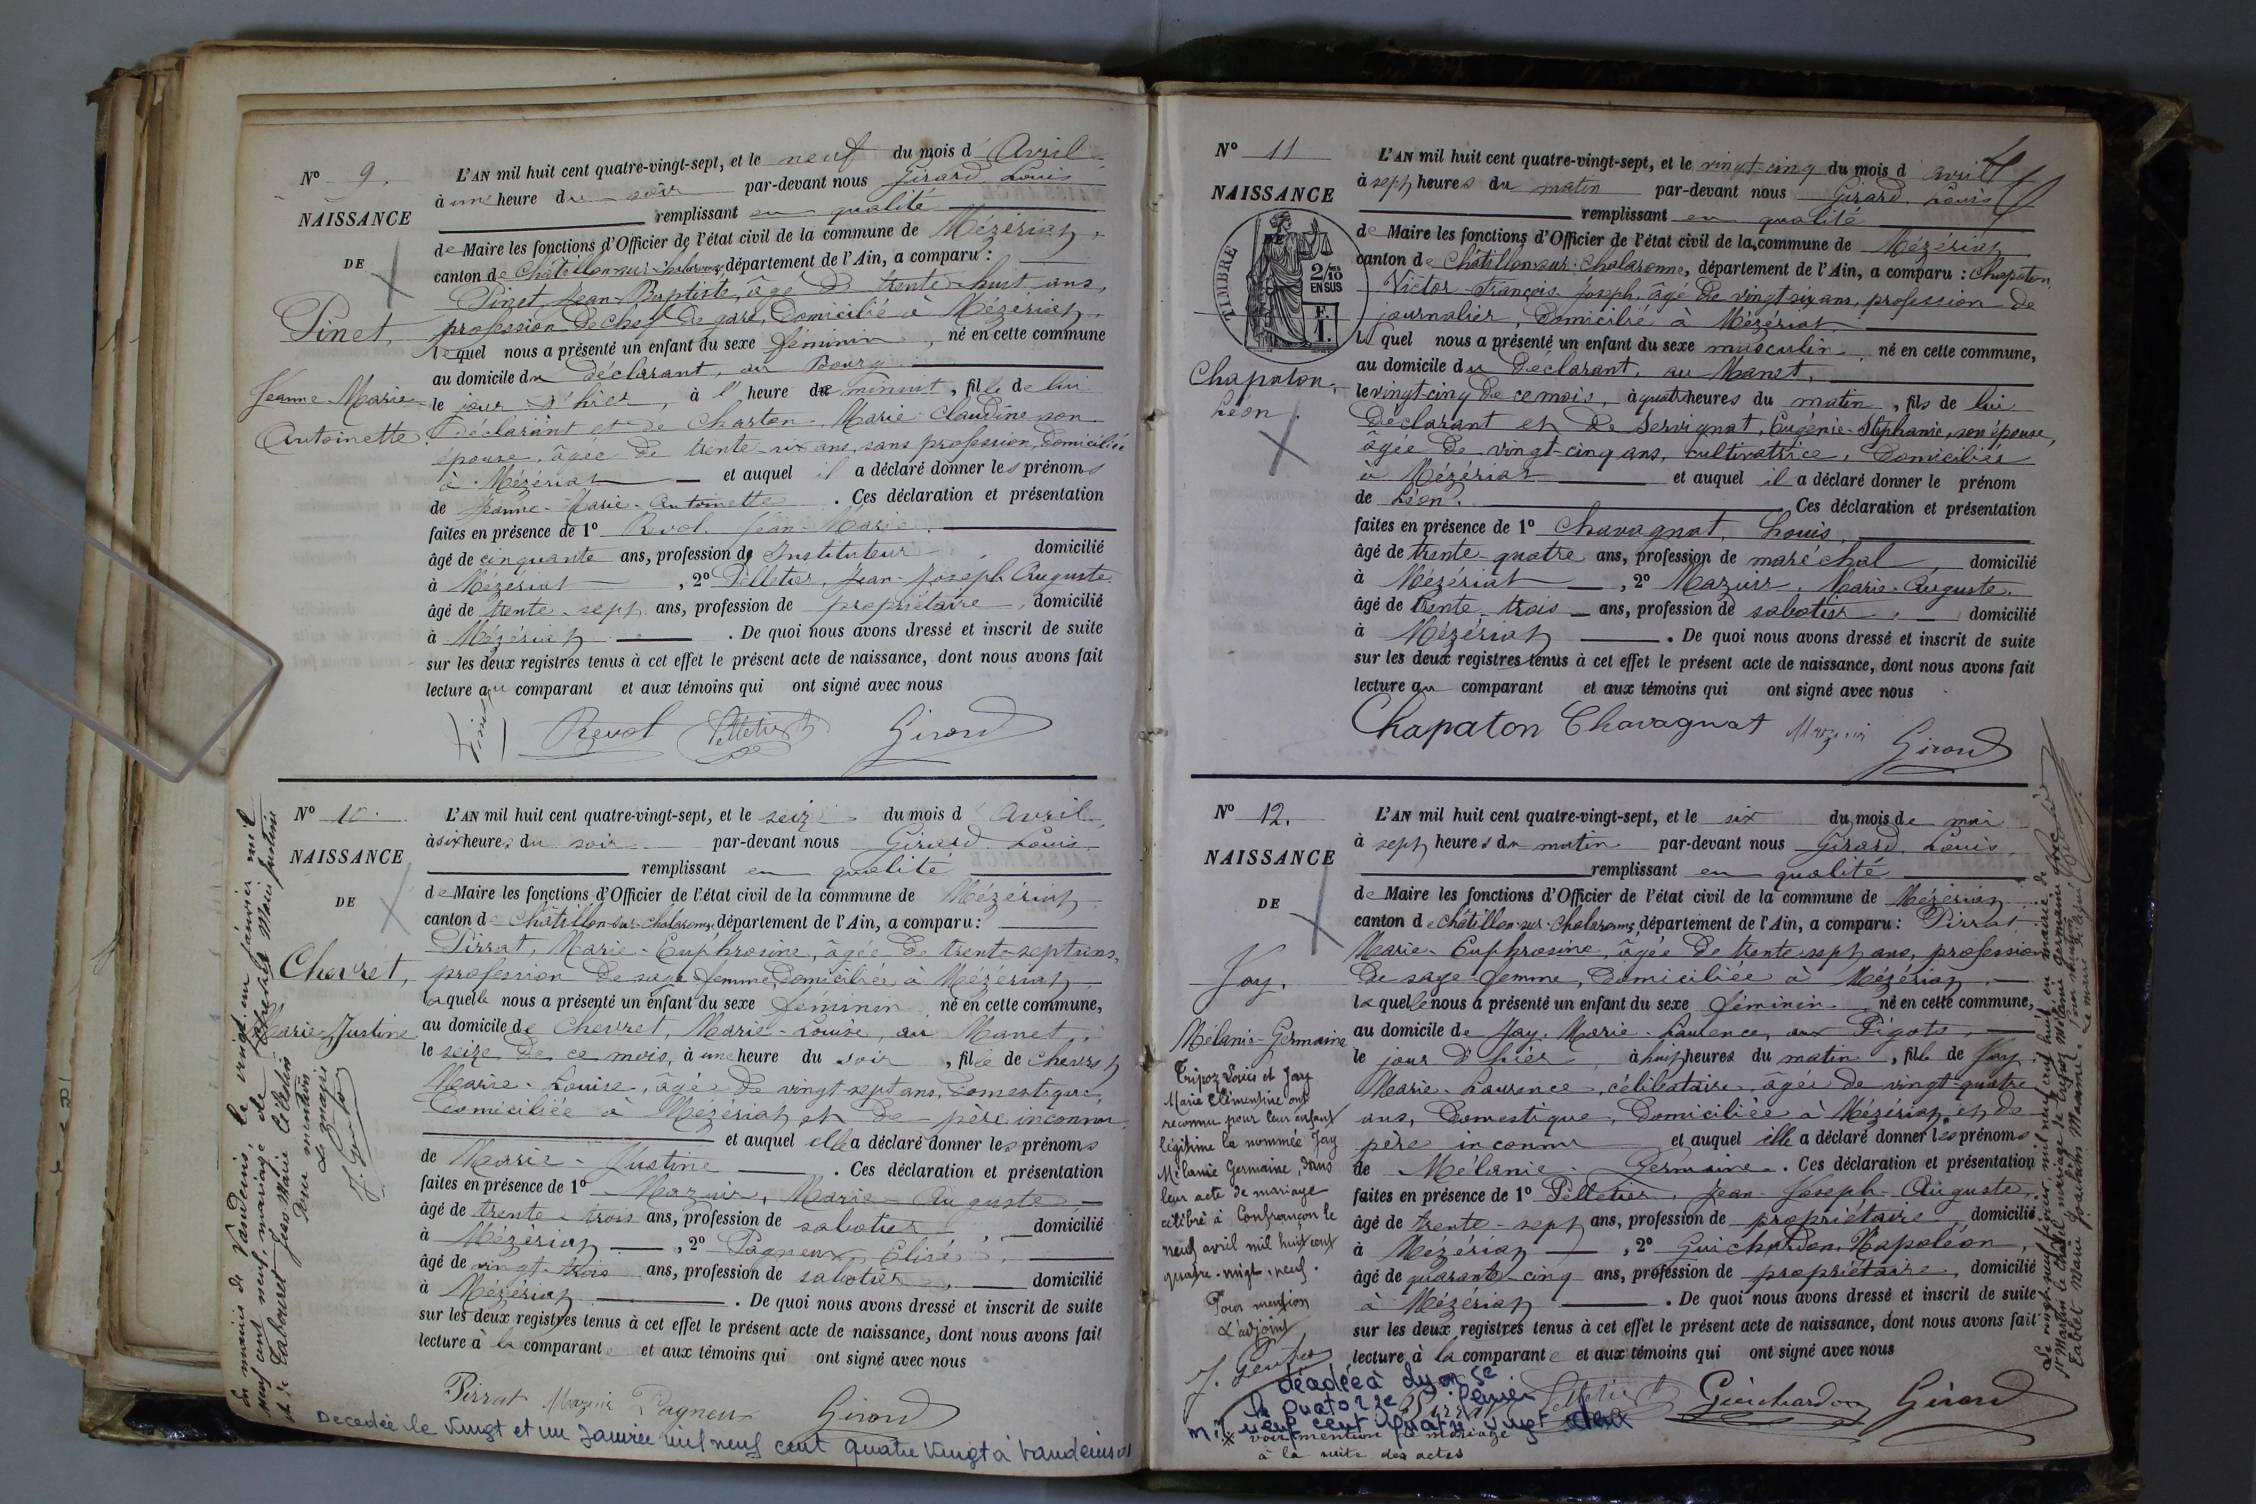 N° 9.
NAISSANCE
DE
Pinet,
Jeanne-Marie-
Antoinette.
L'AN mil huit cent quatre-vingt-sept, et le neuf du mois d'Avril
à une heure du soir par-devant nous Girard Louis
remplissant en qualité
de Maire les fonctions d'Officier de l'état civil de la commune de Mézériat,
canton de Châtillon-sur-Chalaronne, département de l'Ain, a comparu :
Pinet, Jean-Baptiste, âgé de trente-huit ans,
profession de chef de gare, domicilié à Mézériat,
lequel nous a présenté un enfant du sexe féminin, né en cette commune
au domicile du déclarant, au Bourg
le jour d'hier, à l'heure de minuit, fille de lui
déclarant et de Charton Marie-Claudine son
épouse, âgée de trente-six ans, sans profession, domiciliée
à Mézériat et auquel il a déclaré donner les prénoms
de Jeanne-Marie-Antoinette. Ces déclaration et présentation
faites en présence de 1° Revol Jean-Marie
âgé de cinquante ans, profession de Instituteur domicilié
à Mézériat, 2° Pelletier, Jean-Joseph Auguste
âgé de trente-sept ans, profession de propriétaire, domicilié
à Mézériat. De quoi nous avons dressé et inscrit de suite
sur les deux registres tenus à cet effet le présent acte de naissance, dont nous avons fait
lecture au comparant et aux témoins qui ont signé avec nous
Pinet Revol Pelletier Girard
N° 10.
NAISSANCE
DE
Chevret,
Marie-Justine
L'AN mil huit cent quatre-vingt-sept, et le seize du mois d'avril
à six heures du soir par-devant nous Girard Louis
remplissant en qualité
de Maire les fonctions d'Officier de l'état civil de la commune de Mézériat
canton de Châtillon-sur-Chalaronne, département de l'Ain, a comparu :
Pirrat, Marie-Euphrosine, âgée de trente-sept ans,
profession de sage-femme, domiciliée à Mézériat,
laquelle nous a présenté un enfant du sexe féminin né en cette commune,
au domicile de Chevret, Marie-Louise, au Manet,
le seize de ce mois, à une heure du soir, fille de Chevret
Marie-Louise, âgée de vingt-sept ans, domestique,
domiciliée à Mézériat et de père inconnu
et auquel elle a déclaré donner les prénoms
de Marie-Justine. Ces déclaration et présentation
faites en présence de 1° Mazuir, Marie-Auguste
âgé de trente-trois ans, profession de sabotier, domicilié
à Mézériat, 2° Pagneux, Elisé
âgé de vingt-trois ans, profession de sabotier, domicilié
à Mézériat. De quoi nous avons dressé et inscrit de suite
sur les deux registres tenus à cet effet le présent acte de naissance, dont nous avons fait
lecture à la comparante et aux témoins qui ont signé avec nous
Pirrat Mazuir Pagneux Girard
En mairie de Vandeins, le vingt-un janvier mil
neuf cent neuf, mariage de Chevret Marie Justine
et de Labouret Jean Marie Célestin
Pour mention
Le maire
Decedée le vingt et un Janvier mil neuf cent quatre vingt à Vandeins
N° 11
NAISSANCE
DE
TIMBRE
2/10
EN SUS
F.
1.
Chapaton,
Léon.
L'AN mil huit cent quatre-vingt-sept, et le vingt-cinq du mois d'avril
à sept heures du matin par-devant nous Girard Louis
remplissant en qualité
de Maire les fonctions d'Officier de l'état civil de la commune de Mézériat
canton de Châtillon-sur-Chalaronne, département de l'Ain, a comparu : Chapaton,
Victor-François-Joseph, âgé de vingt-six ans, profession de
journalier, domicilié à Mézériat,
lequel nous a présenté un enfant du sexe masculin, né en cette commune,
au domicile du déclarant, au Manet,
le vingt-cinq de ce mois, à quatre heures du matin, fils de lui
déclarant et de Servignat, Eugénie-Stéphanie, son épouse,
âgée de vingt-cinq ans, cultivatrice, domiciliée
à Mézériat et auquel il a déclaré donner le prénom
de Léon. Ces déclaration et présentation
faites en présence de 1° Chavagnat, Louis,
âgé de trente-quatre ans, profession de maréchal, domicilié
à Mézériat, 2° Mazuir, Marie-Auguste
âgé de trente-trois ans, profession de sabotier, domicilié
à Mézériat. De quoi nous avons dressé et inscrit de suite
sur les deux registres tenus à cet effet le présent acte de naissance, dont nous avons fait
lecture au comparant et aux témoins qui ont signé avec nous
Chapaton Chavagnat Mazuir Girard
N° 12.
NAISSANCE
DE
Jay,
Mélanie-Germaine
Tripoz Louis et Jay
Marie Clémentine ont
reconnu pour leur enfant
légitime la nommée Jay
Mélanie Germaine, dans
leur acte de mariage
célébré à Confrançon le
neuf avril mil huit cent
quatre-vingt-neuf.
Pour mention
L'adjoint
L'AN mil huit cent quatre-vingt-sept, et le six du mois de mai
à sept heures du matin par-devant nous Girard Louis
remplissant en qualité
de Maire les fonctions d'Officier de l'état civil de la commune de Mézériat
canton de Châtillon-sur-Chalaronne, département de l'Ain, a comparu : Pirrat
Marie-Euphrosine, âgée de trente-sept ans, profession
de sage-femme, domiciliée à Mézériat,
laquelle nous a présenté un enfant du sexe féminin, né en cette commune,
au domicile de Jay, Marie-Laurence, aux Pigots,
le jour d'hier, à huit heures du matin, fille de Jay,
Marie-Laurence, célibataire, âgée de vingt-quatre
ans, domestique, domiciliée à Mézériat et de
père inconnu et auquel elle a déclaré donner les prénoms
de Mélanie-Germaine. Ces déclaration et présentation
faites en présence de 1° Pelletier, Jean-Joseph-Auguste,
âgé de trente-sept ans, profession de propriétaire domicilié
à Mézériat, 2° Guichardon, Napoléon,
âgé de quarante-cinq ans, profession de propriétaire, domicilié
à Mézériat. De quoi nous avons dressé et inscrit de suite
sur les deux registres tenus à cet effet le présent acte de naissance, dont nous avons fait
lecture à la comparante et aux témoins qui ont signé avec nous
Pirrat Pelletier Guichardon Girard
décédée à Lyon 5e
le quatorze février
mil neuf cent quatre vingt deux
※ voir mention de mariage
à la suite des actes
Le vingt-neuf février mil neuf cent huit en mairie de
St Martin le Châtel, mariage de Tripoz Mélanie Germaine avec
Tablet Marie Joachim Mamié. Pour mention
Le maire